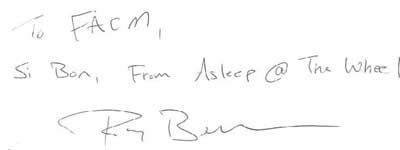 To FACM,
Si Bon, From Asleep @ The Wheel
Ray Ben